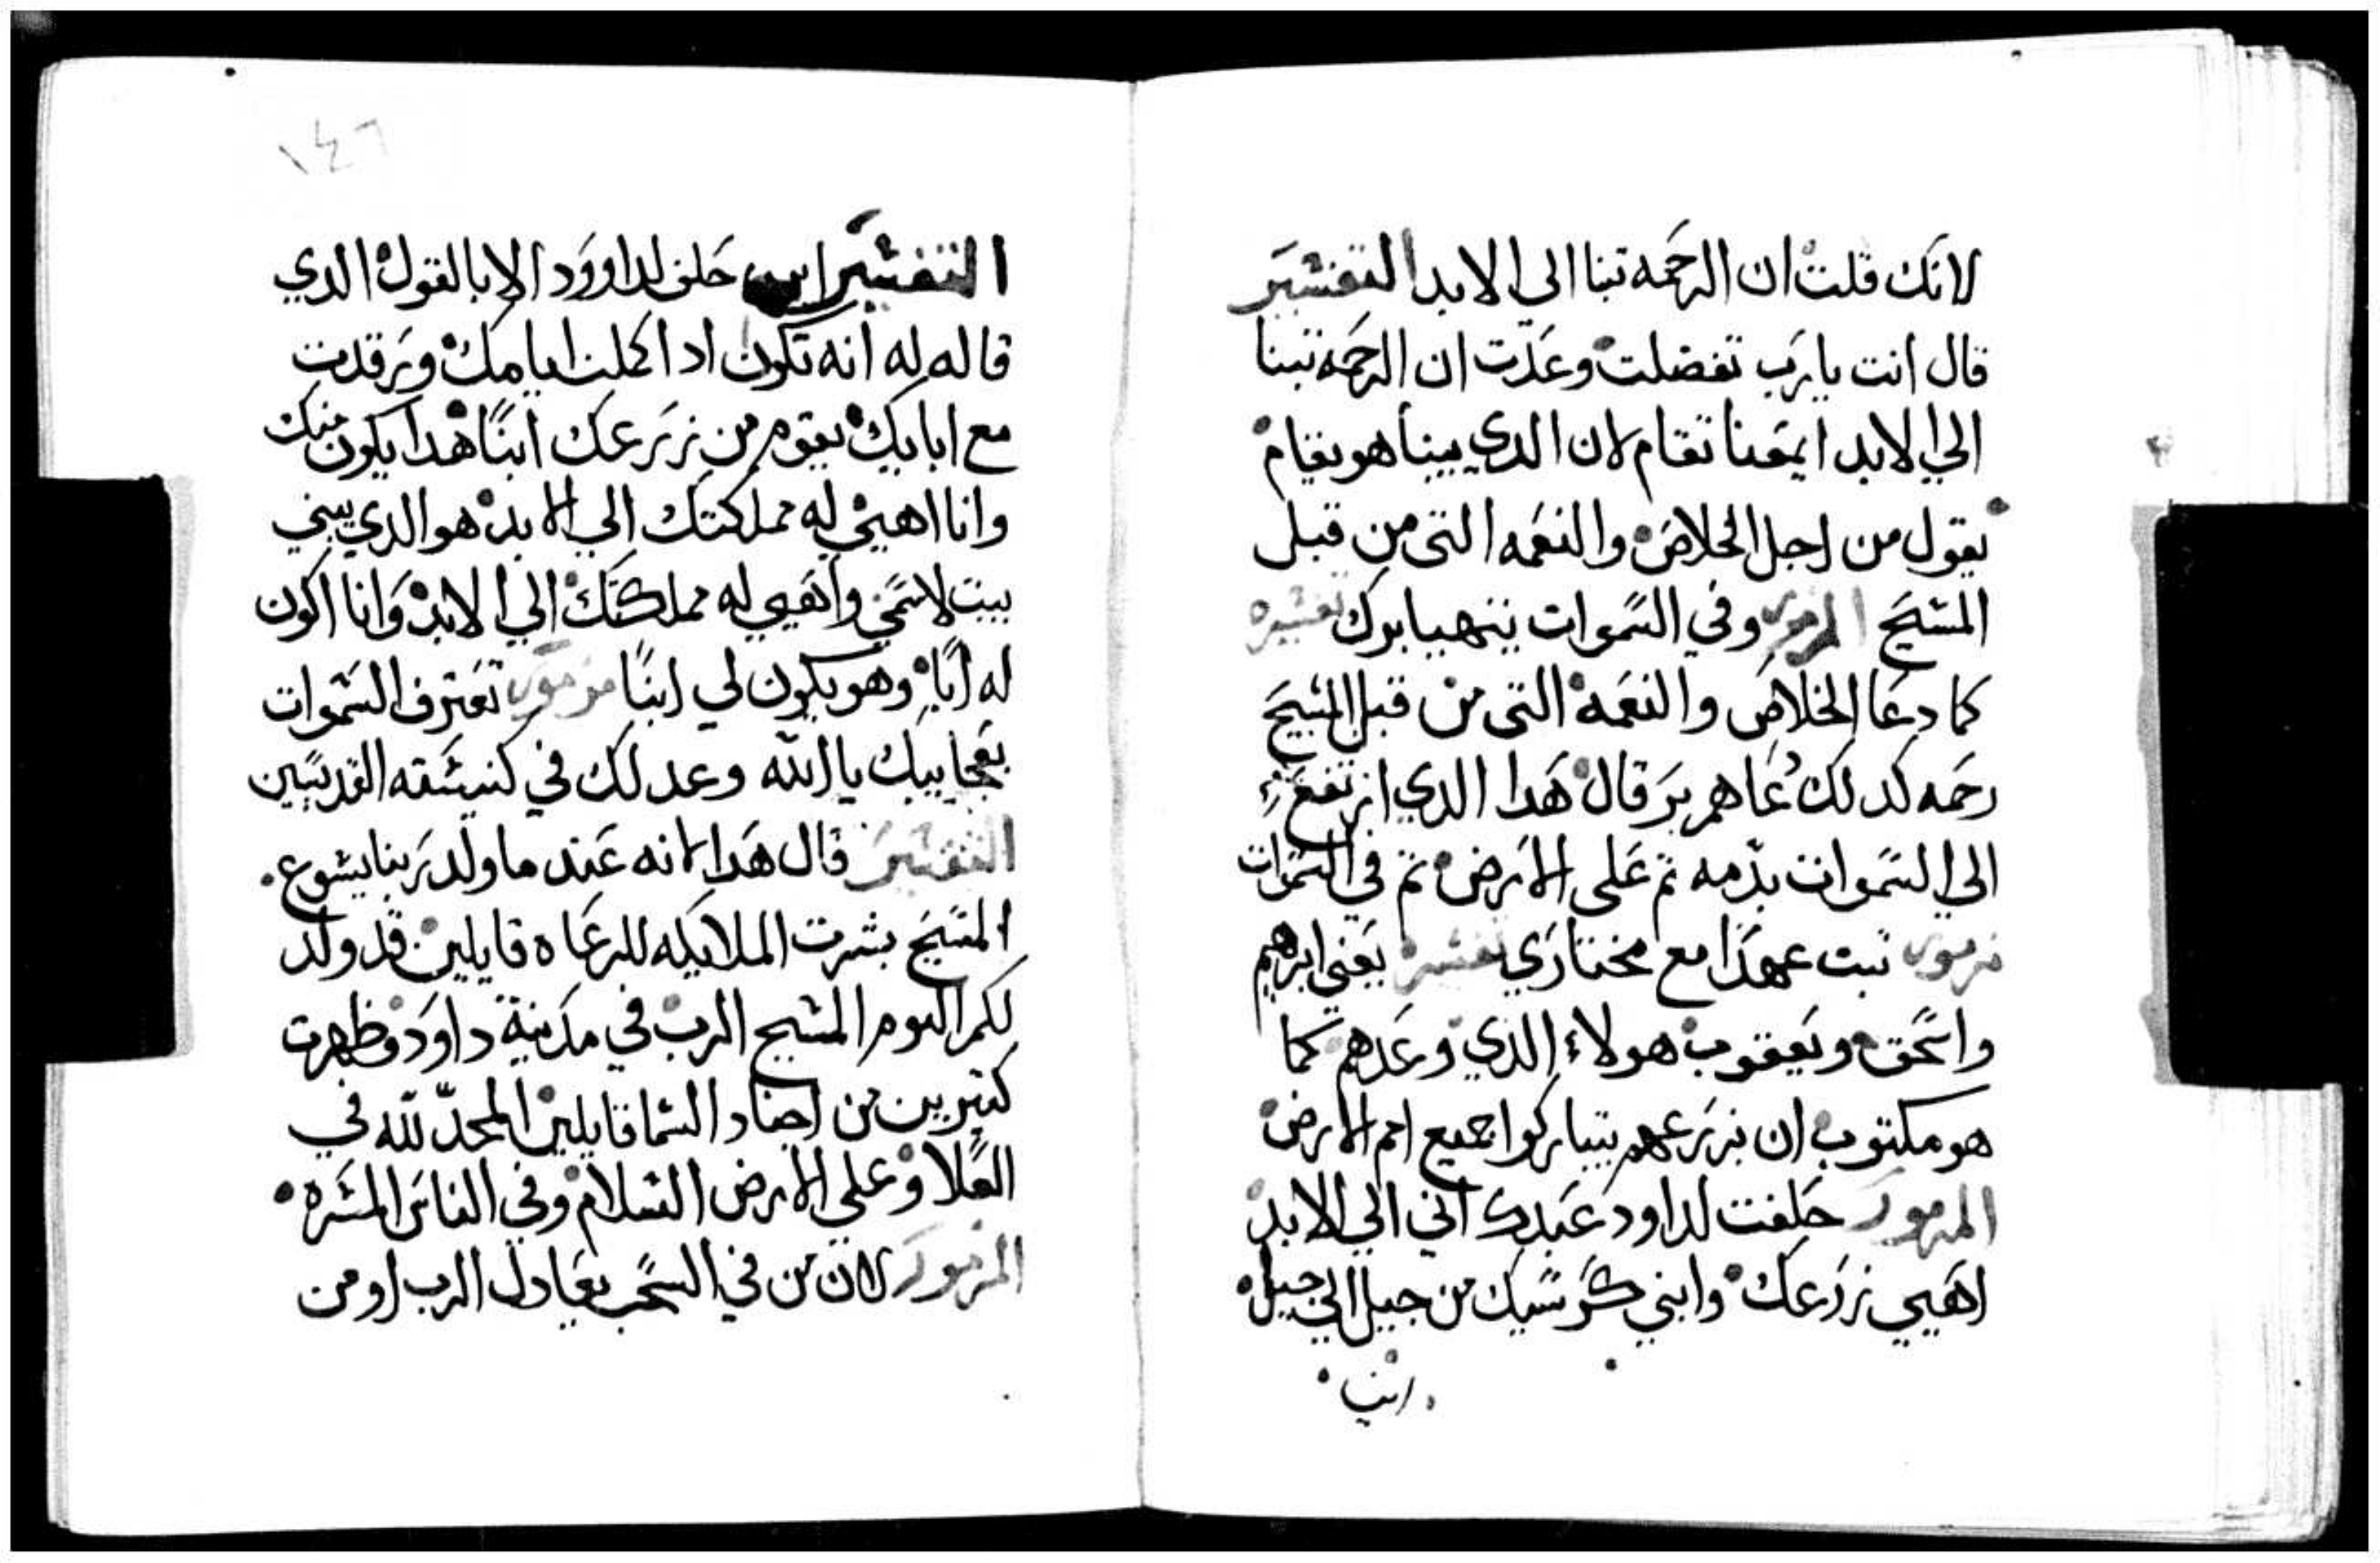 لانك قلت ان الرحمه تبنا الي الابد التفسير
قال انت يا رب تفضلت وعدت ان الرحمه تبنا
الي الابد ايعنا تقام لان الدي يبنا هو يقام
يقول من اجل الخلاص والنعمه التي من قبل
المسيح المزمور وفي السموات يتهيا برك تفسيره
كما دعا الخلاص والنعمه التي من قبل المسيح
رحمه كدلك دعاهم بر قال هدا الدي ارتفع
الي السموات بدمه تم علي الارض تم في السموات
مزمور تبت عهدا مع مختاري تفسيره يعني ابرهيم
واسحق ويعقوب هولاء الدي وعدهم كما
هو مكتوب ان بزرعهم يتباركوا جميع امم الارض
المزمور حلفت لداود عبدك اني الي الابد
اهيي زرعك وابني كرسيك من جيل الي جيل
التفسير اين حلف لداوود الا بالقول الدي
قاله له انه تكون ادا كملت ايامك ورقدت
مع ابايك يقوم من زرعك ابنا هدا يكون منك
وانا اهيي له مملكتك الي الابد هو الدي يبني
بيت لاسمي واهيي له مملكتك الي الابد وانا اكون
له ابا وهو يكون لي ابنا مزمور تعترف السموات
بعجايبك يا الله وعدلك في كنيسة القديسين
التفسير قال هدا لانه عند ما ولد ربنا يشوع
المسيح بشرت الملايكه للرعاه قايلين قد ولد
لكم اليوم المسيح الرب في مدينة داود وظهرت
كتيرين من اجناد السما قايلين المجد لله في
العلا وعلي الارض السلام وفي الناس المسره
المزمور لان من في السحب يعادل الرب او من
١٤٦